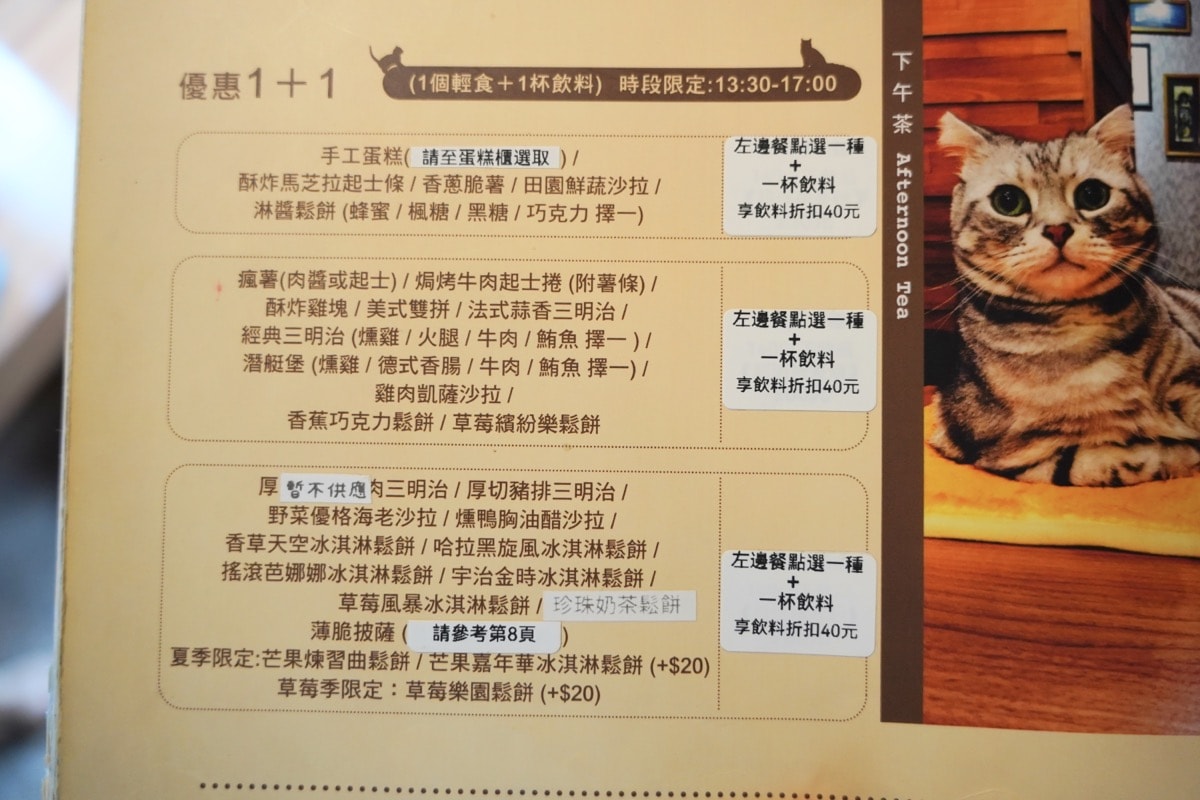 優惠1＋1
(1個輕食＋1杯飲料) 時段限定:13:30-17:00
手工蛋糕( 請至蛋糕櫃選取 ) /
酥炸馬芝拉起士條 / 香蔥脆薯 / 田園鮮蔬沙拉 /
淋醬鬆餅 (蜂蜜 / 楓糖 / 黑糖 / 巧克力 擇一)
左邊餐點選一種
+
一杯飲料
享飲料折扣40元
瘋薯(肉醬或起士) / 焗烤牛肉起士捲 (附薯條) /
酥炸雞塊 / 美式雙拼 / 法式蒜香三明治 /
經典三明治 (燻雞 / 火腿 / 牛肉 / 鮪魚 擇一 ) /
潛艇堡 (燻雞 / 德式香腸 / 牛肉 / 鮪魚 擇一) /
雞肉凱薩沙拉 /
香蕉巧克力鬆餅 / 草莓繽紛樂鬆餅
左邊餐點選一種
+
一杯飲料
享飲料折扣40元
厚 暫不供應 肉三明治 / 厚切豬排三明治 /
野菜優格海老沙拉 / 燻鴨胸油醋沙拉 /
香草天空冰淇淋鬆餅 / 哈拉黑旋風冰淇淋鬆餅 /
搖滾芭娜娜冰淇淋鬆餅 / 宇治金時冰淇淋鬆餅 /
草莓風暴冰淇淋鬆餅 / 珍珠奶茶鬆餅
薄脆披薩 ( 請參考第8頁 )
夏季限定:芒果煉習曲鬆餅 / 芒果嘉年華冰淇淋鬆餅 (+$20)
草莓季限定：草莓樂園鬆餅 (+$20)
左邊餐點選一種
+
一杯飲料
享飲料折扣40元
下午茶 Afternoon Tea